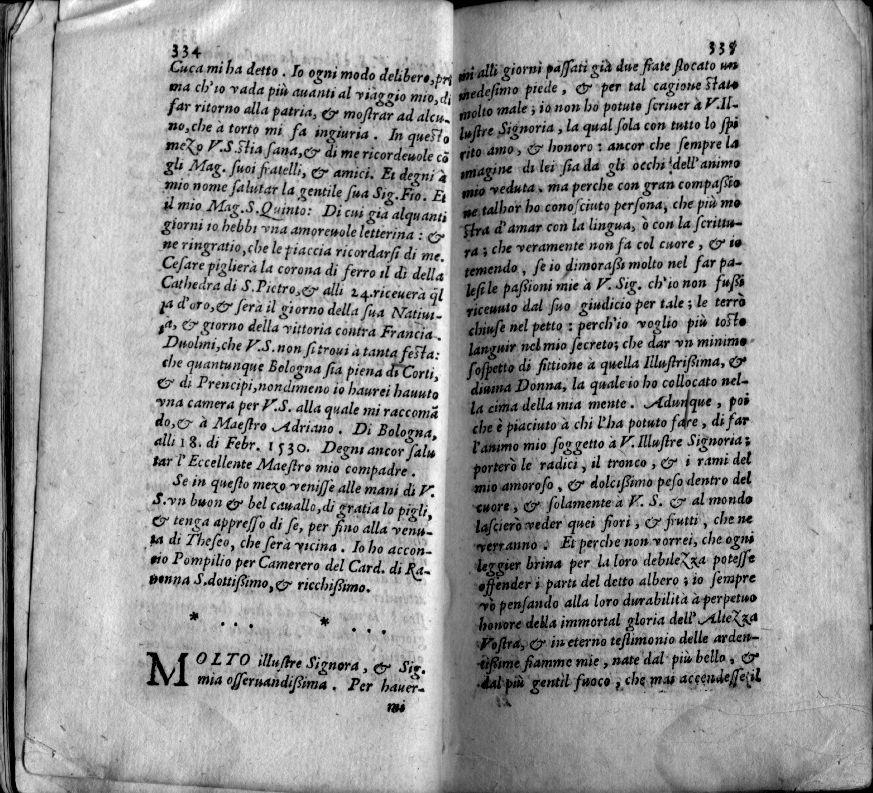 334
Cuca mi ha detto. Io ogni modo delibero, pri
ma ch'io vada più auanti al viaggio mio, di
far ritorno alla patria, & mostrar ad alcu-
no, che à torto mi fa ingiuria. In questo
mezo V.S. stia sana, & di me ricordeuole cō
gli Mag. suoi fratelli, & amici. Et degni à
mio nome salutar la gentile sua Sig. Fio. Et
il mio Mag. S. Quinto: Di cui già alquanti
giorni io hebbi vna amoreuole letterina: &
ne ringratio, che le piaccia ricordarsi di me.
Cesare piglierà la corona di ferro il dì della
Cathedra di S. Pietro, & alli 24. riceuerà q̄l
la d'oro, & serà il giorno della sua Natiui-
tà, & giorno della vittoria contra Francia.
Duolmi, che V.S. non si troui à tanta festa:
che quantunque Bologna sia piena di Corti,
& di Prencipi, nondimeno io haurei hauuto
vna camera per V.S. alla quale mi raccomā
do, & à Maestro Adriano. Di Bologna,
alli 18. di Febr. 1530. Degni ancor salu
tar l'Eccellente Maestro mio compadre.
Se in questo mezo venisse alle mani di V.
S. vn buon & bel cauallo, di gratia lo pigli,
& tenga appresso di se, per fino alla venu-
ta di Theseo, che serà vicina. Io ho accon-
cio Pompilio per Camerero del Card. di Ra-
uenna S. dottissimo, & ricchissimo.
* ... * ...
MOLTO illustre Signora, & Sig.
mia osseruandissima. Per hauer-
mi
335
mi alli giorni passati già due fiate slocato un
medesimo piede, & per tal cagione stato
molto male; io non ho potuto scriuer à V. Il-
lustre Signoria, la qual sola con tutto lo spi
rito amo, & honoro: ancor che sempre la
imagine di lei sia da gli occhi dell'animo
mio veduta. ma perche con gran compassio
ne talhor ho conosciuto persona, che più mo
stra d'amar con la lingua, ò con la scrittu-
ra; che veramente non fa col cuore, & io
temendo, se io dimorassi molto nel far pa-
lesi le passioni mie à V. Sig. ch'io non fussi
riceuuto dal suo giudicio per tale; le terrò
chiuse nel petto: perch'io voglio più tosto
languir nel mio secreto; che dar vn minimo
sospetto di fittione à quella Illustrissima, &
diuina Donna, la quale io ho collocato nel-
la cima della mia mente. Adunque, poi
che è piaciuto à chi l'ha potuto fare, di far
l'animo mio soggetto à V. Illustre Signoria;
porterò le radici, il tronco, & i rami del
mio amoroso, & dolcissimo peso dentro del
cuore, & solamente à V. S. & al mondo
lascierò veder quei fiori, & frutti, che ne
verranno. Et perche non vorrei, che ogni
leggier brina per la loro debilezza potesse
offender i parti del detto albero; io sempre
vò pensando alla loro durabilità à perpetuo
honore della immortal gloria dell'Altezza
Vostra, & in eterno testimonio delle arden-
tissime fiamme mie, nate dal più bello, &
dal più gentil fuoco, che mai accendesse il